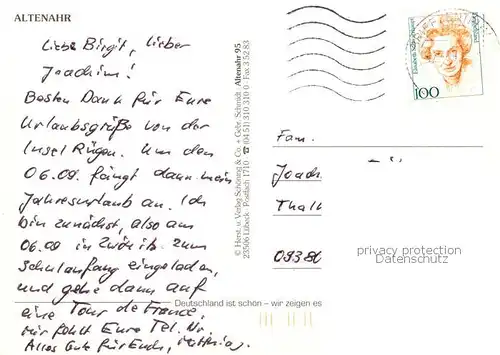 ALTENAHR
Liebe Birgit, lieber
Joachim!
Besten Dank für Eure
Urlaubsgrüße von der
Insel Rügen. Um den
06.09. fängt dann mein
Jahresurlaub an. Ich
bin zunächst, also am
06.09 in zum
Schulanfang eingeladen,
und gehe dann auf
eine Tour de France,
mir fehlt Eure Tel. Nr.
Alles Gute für Euch,
© Herst. u. Verlag Schöning & Co. + Gebr. Schmidt
23506 Lübeck · Postfach 1710 · ☎ (04 51) 310 310 0 · Fax 3 52 83
Altenahr 95
Deutschland ist schön – wir zeigen es
100
Fam.
Joach
Thalk
privacy protection
Datenschutz